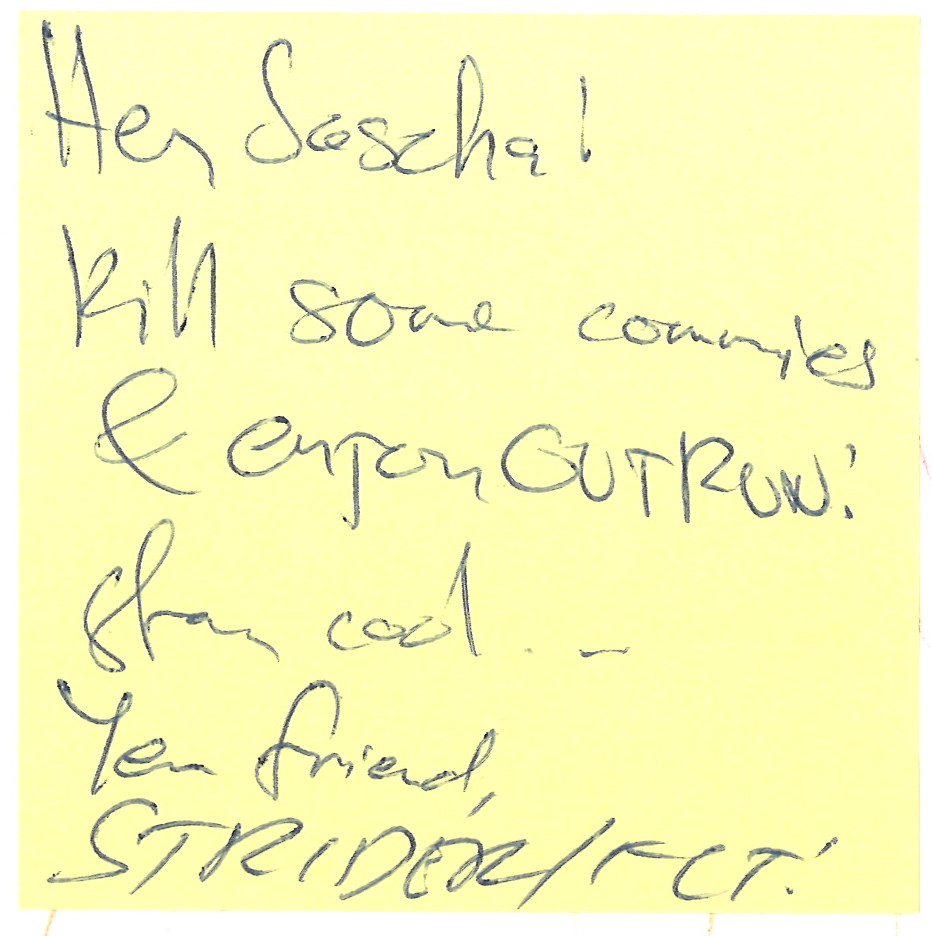 Hey Sascha!
Kill some commies
& enjoy OUTRUN!
Stay cool...
Your friend,
STRIDER/FLT!